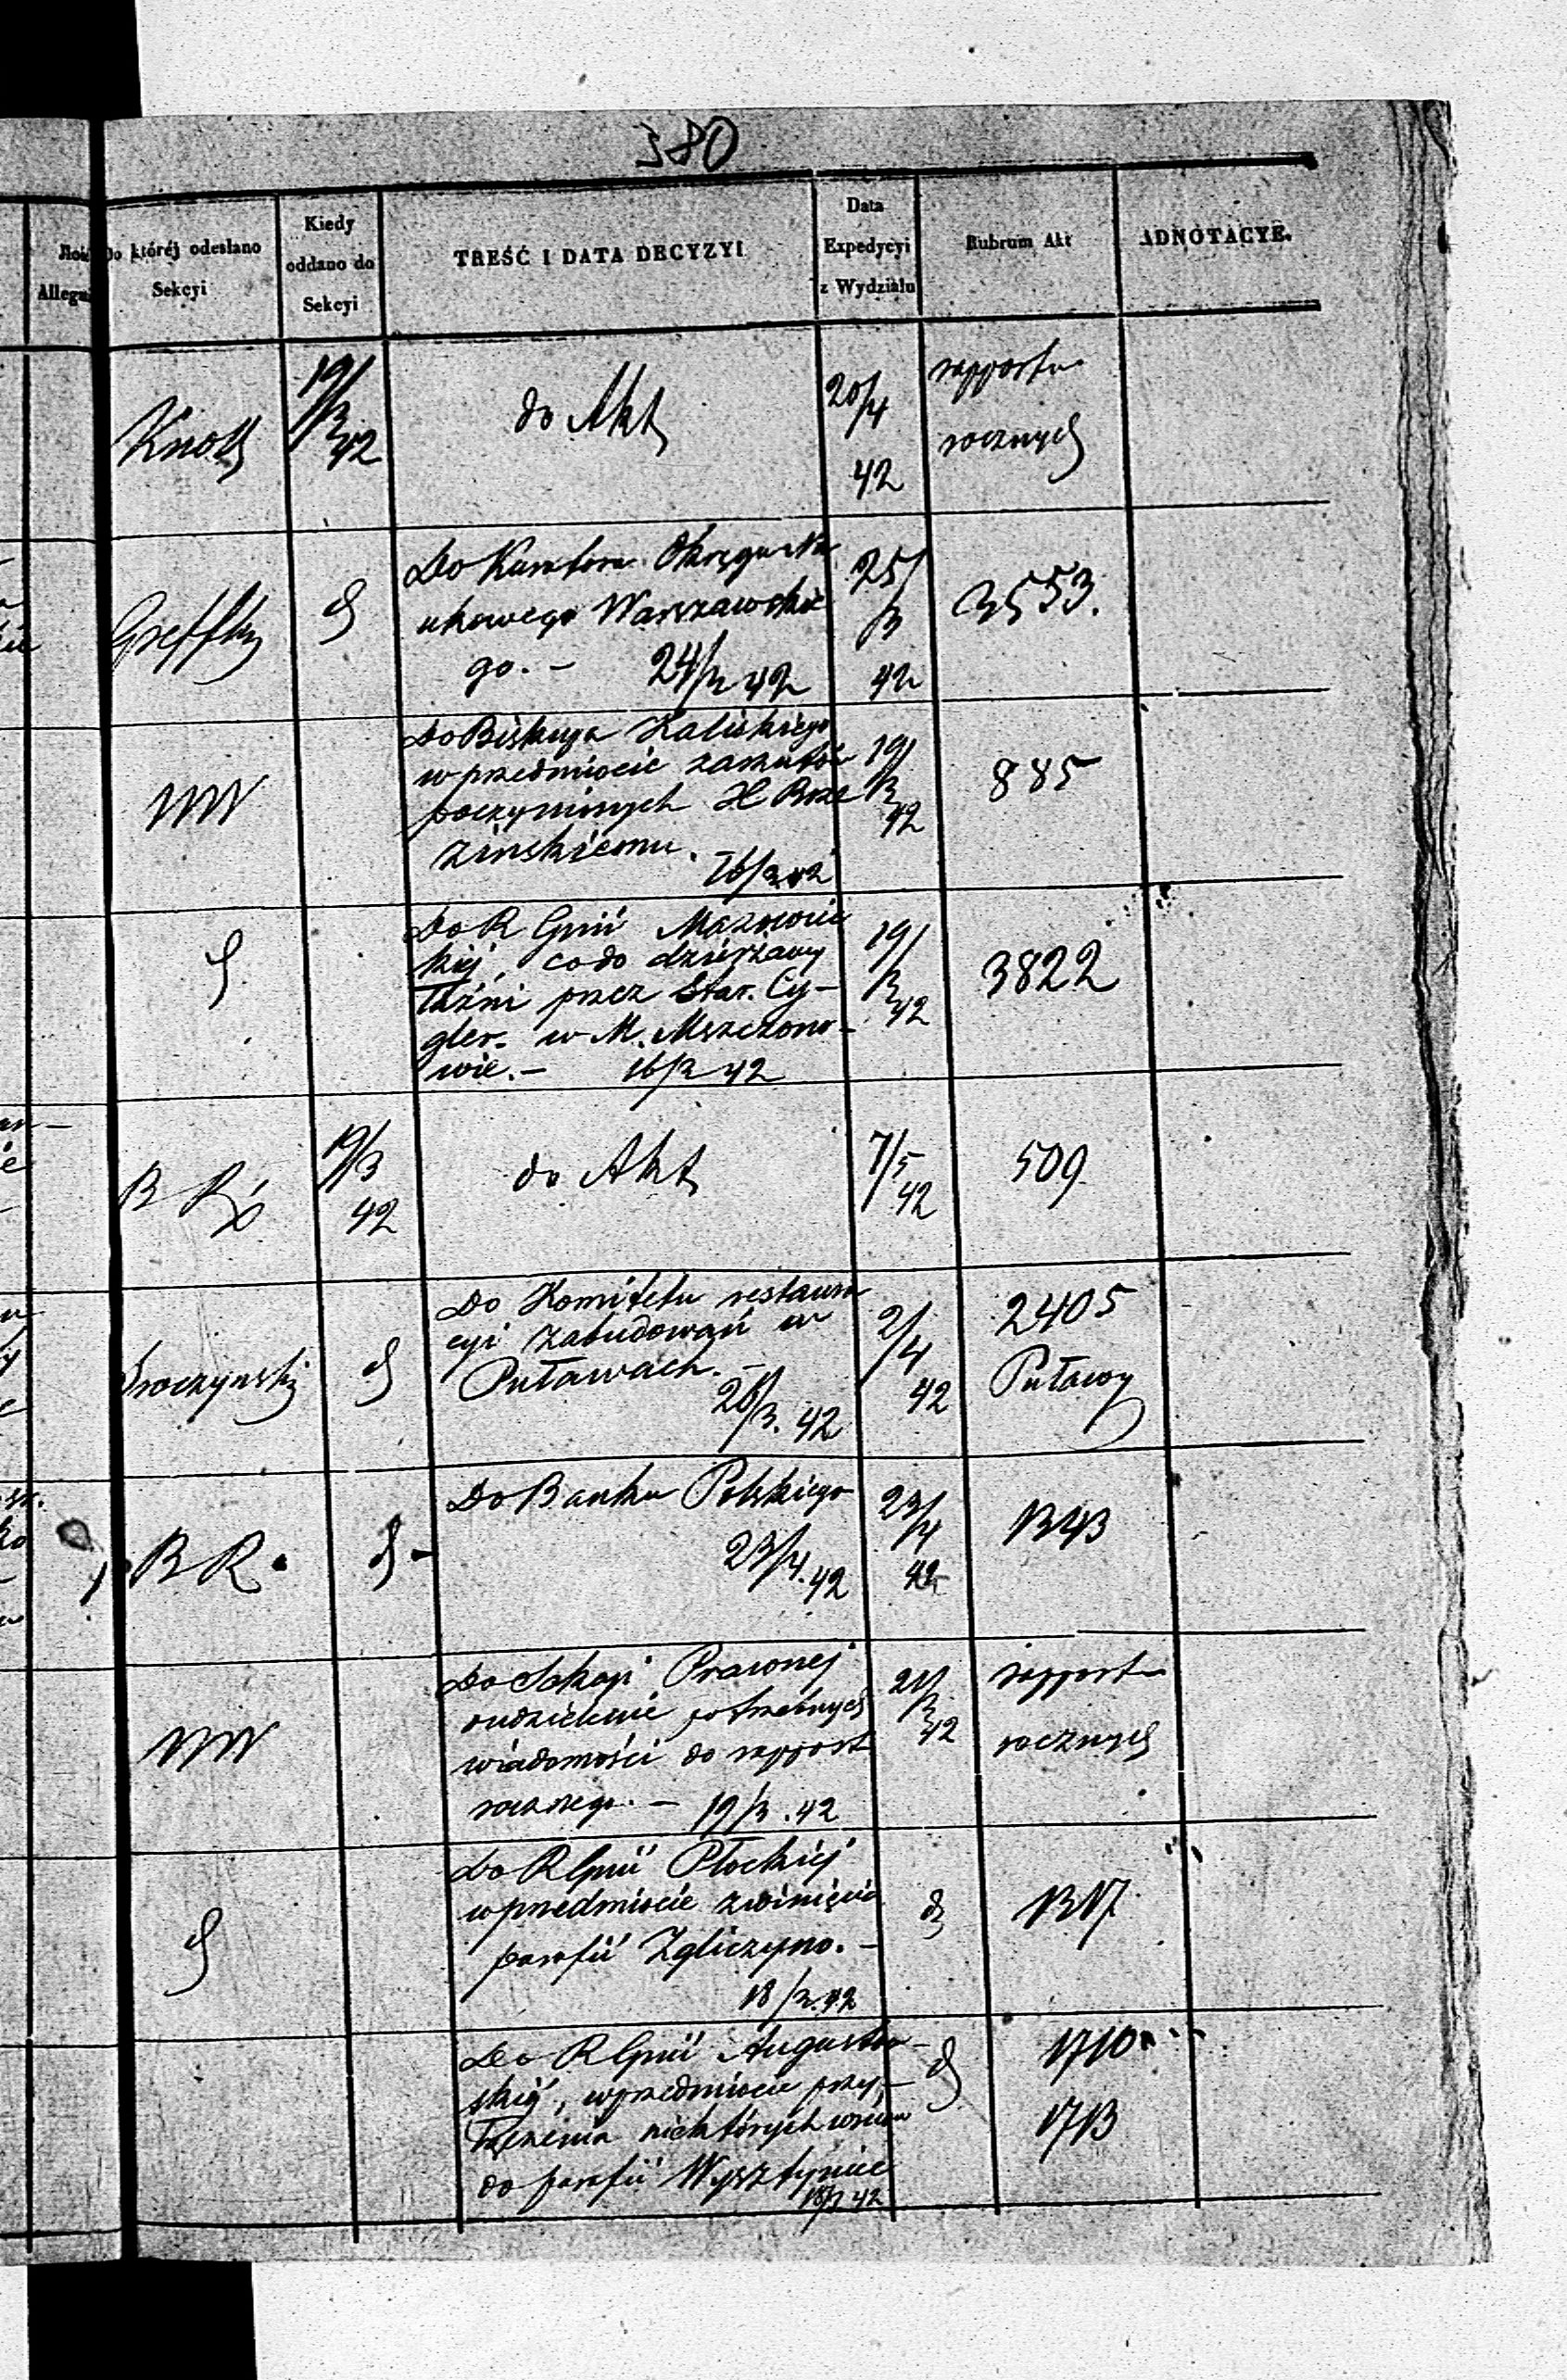 380
Do której odesłano Sekcyi
Kiedy oddano do Sekcyi
TREŚĆ I DATA DECYZYI
Data Expedycyi z Wydziału
Rubrum Akt
ADNOTACYE.
Knoll
19/3 42
do Akt
20/4 42
rapportu
rocznych
Do Kuratora Okręgu Na
ukowego Warszawskie
go. – 24/3 42
25/3 42
3553.
Do Biskupa Kaliskiego
w przedmiocie zarzutów
poczynionych X Brze
zinskiemu. –
16/3 42
19/3 42
885
Do R Gnii Mazowiec
kiej, co do dzierżawy
łaźni przez Star. Cy–
gler. w M. Mszczono–
wie. – 16/3 42
19/3 42
3822
B R
19/3 42
do Akt
7/5 42
509
Do Komitetu restaura
cyi zabudowań w
Puławach. –
26/3. 42
2/4 42
2405
Puławy
B R.
Do Banku Polskiego
23/4. 42
23/4 42
1343
Do Sekcyi Prawnej
o udzielenie potrzebnych
wiadomości do rapport
rocznego. – 19/3. 42
21/3 42
rapport
rocznych
Do R Gnii Płockiej
w przedmiocie zwinięcia
parafii Zgliczyno. –
18/3. 42
1317
Do R Gnii Augustow–
skiej, w przedmiocie przy–
łączenia niektórych wsiów
do parafii Wysztyniec
18/3 42
1710
1713